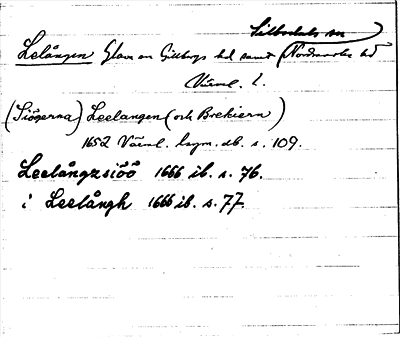 Silbodals sn
Lelången Glava o Gillbergs hd samt Nordmarks hd
Värml. l.
(Siögerna) Leelangen (och Brekiern)
1652 Värml. lagm.db. s. 109.
Leelångzsiöö 1666 ib. s. 76.
i Leelångh 1666 ib. s. 77.